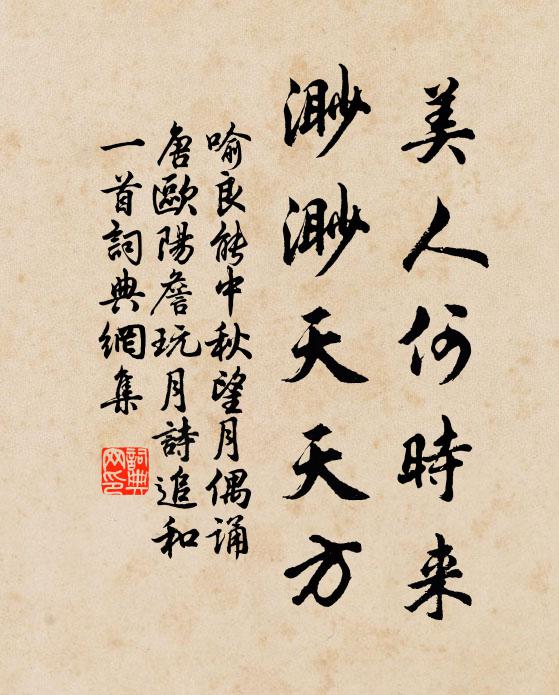 美人何時来
渺渺天天方
喻良能中秋望月偶诵
唐歐陽詹玩月詩追和
一首詞典網集
詞典
网印